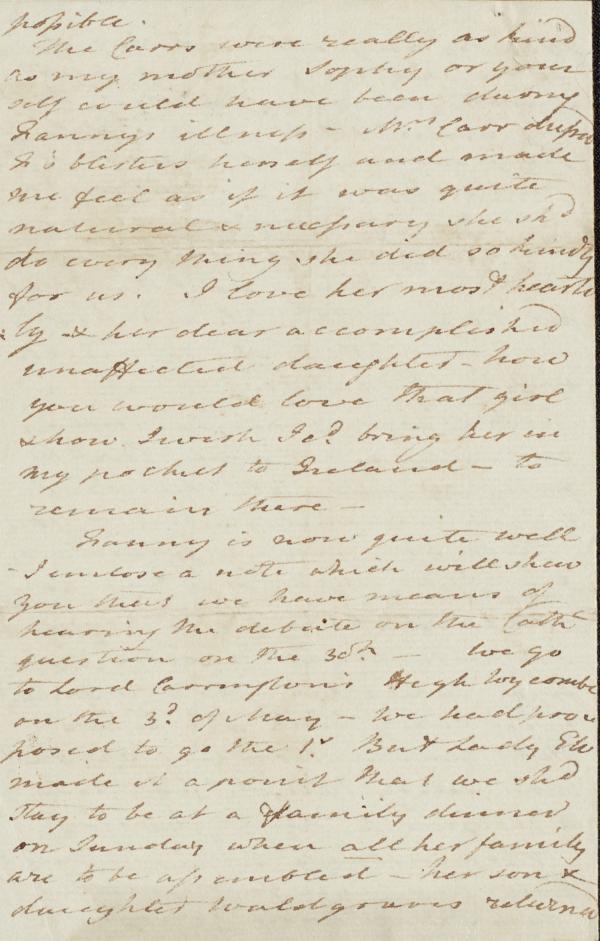 possible.
The Carrs were really as kind
as my mother Sophy or your
self could have been during
Fannys illness – Mrs. Carr dress'd
F's blisters herself and made
me feel as if it was quite
natural & necessary she shd
do every thing she did so kindly
for us. I love her most hearti
ly & her dear accomplished
unaffected daughter – how
you would love that girl
& how I wish I cd. bring her in
my pocket to Ireland – to
remain there –
Fanny is now quite well
I enclose a note which will shew
you that we have means of
hearing the debate on the Cath
question on the 30th – We go
to Lord Carrington's High Wycombe
on the 3d. of May – We had pro
posed to go the 1st But Lady Eliz
made it a point that we shd
stay to be at a family dinner
on Sunday when all her family
are to be assembled – her son &
daughter Waldgraves returned